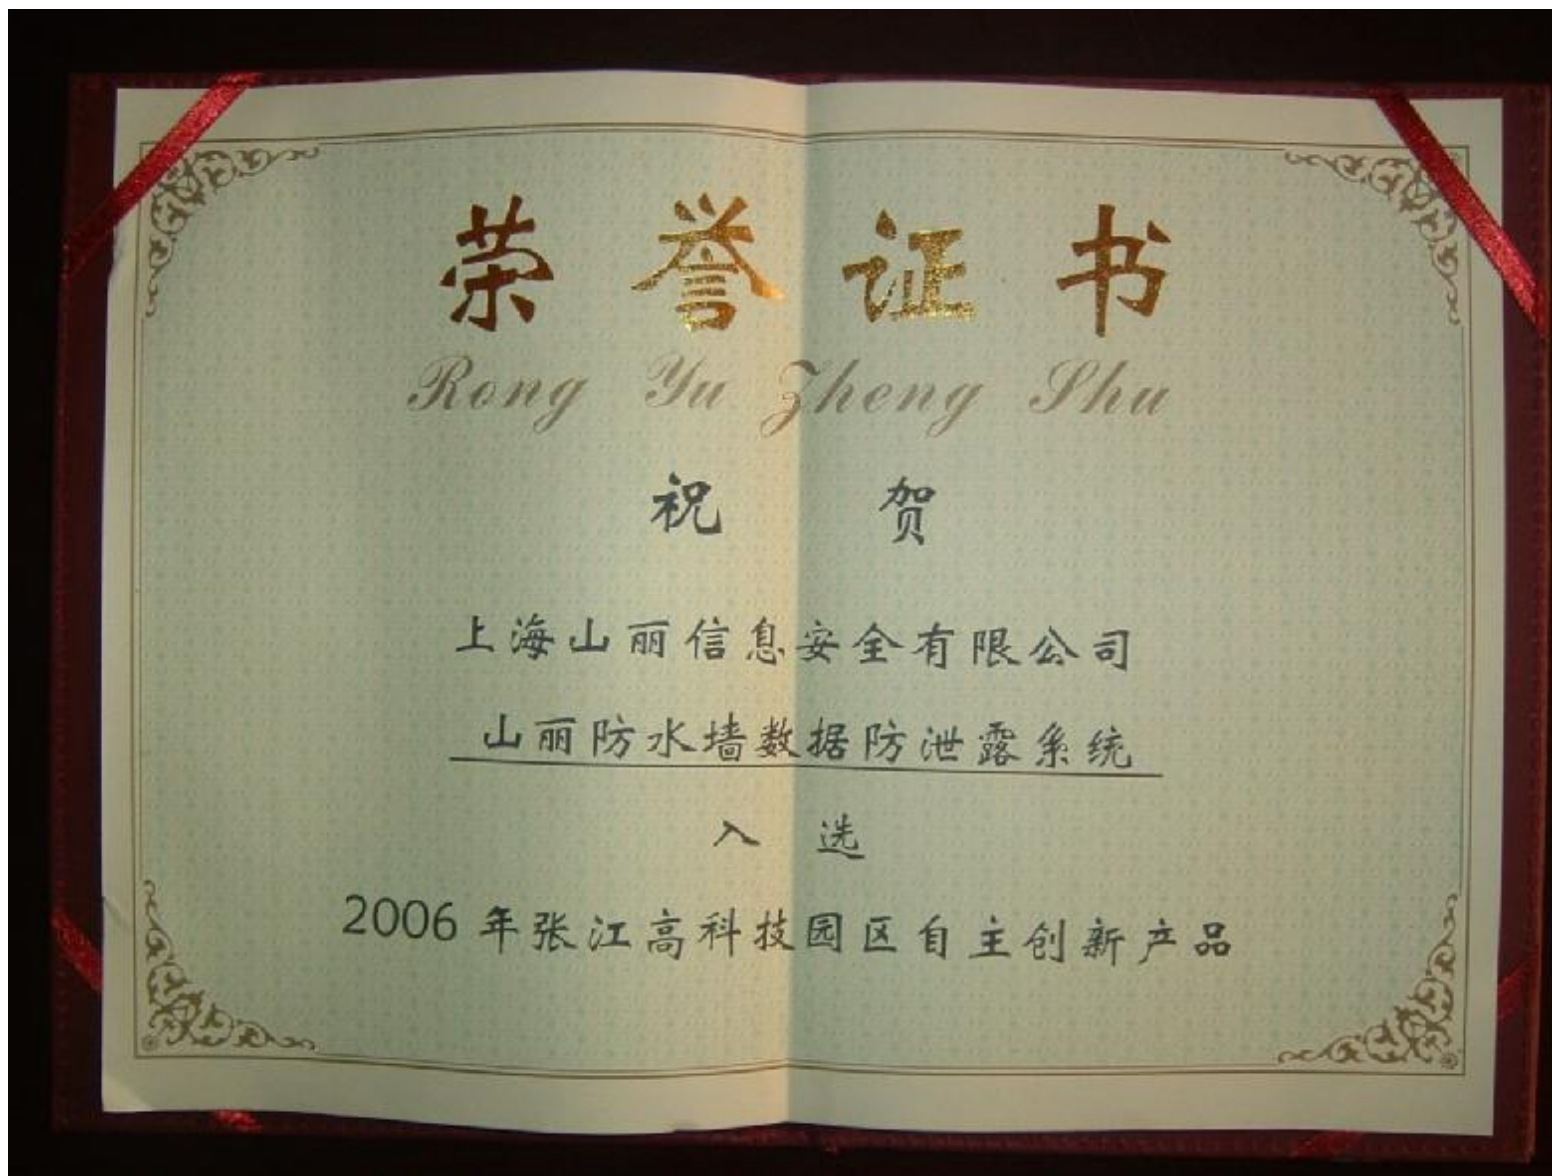 荣誉证书
Rong Yu Zheng Shu
祝 贺
上海山丽信息安全有限公司
山丽防水墙数据防泄露系统
入 选
2006年张江高科技园区自主创新产品